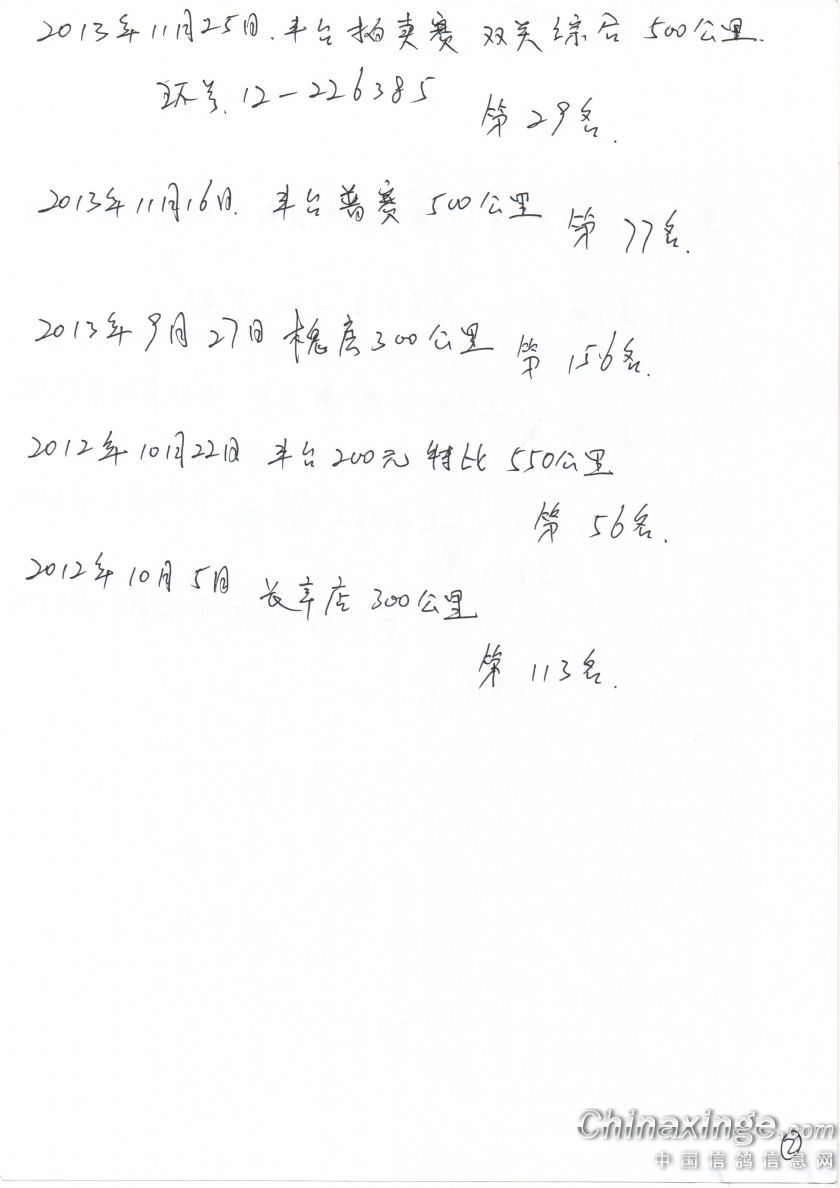 2013年11月25日.丰台拍卖赛 双关综合 500公里.
环号.12-226385 第29名.
2013年11月16日. 丰台普赛 500公里 第77名.
2013年9月27日 槐房300公里 第156名.
2012年10月22日 丰台200元特比 550公里
第56名.
2012年10月5日 长辛店 300公里
第113名.
②
Chinaxinge.com
中国信鸽信息网